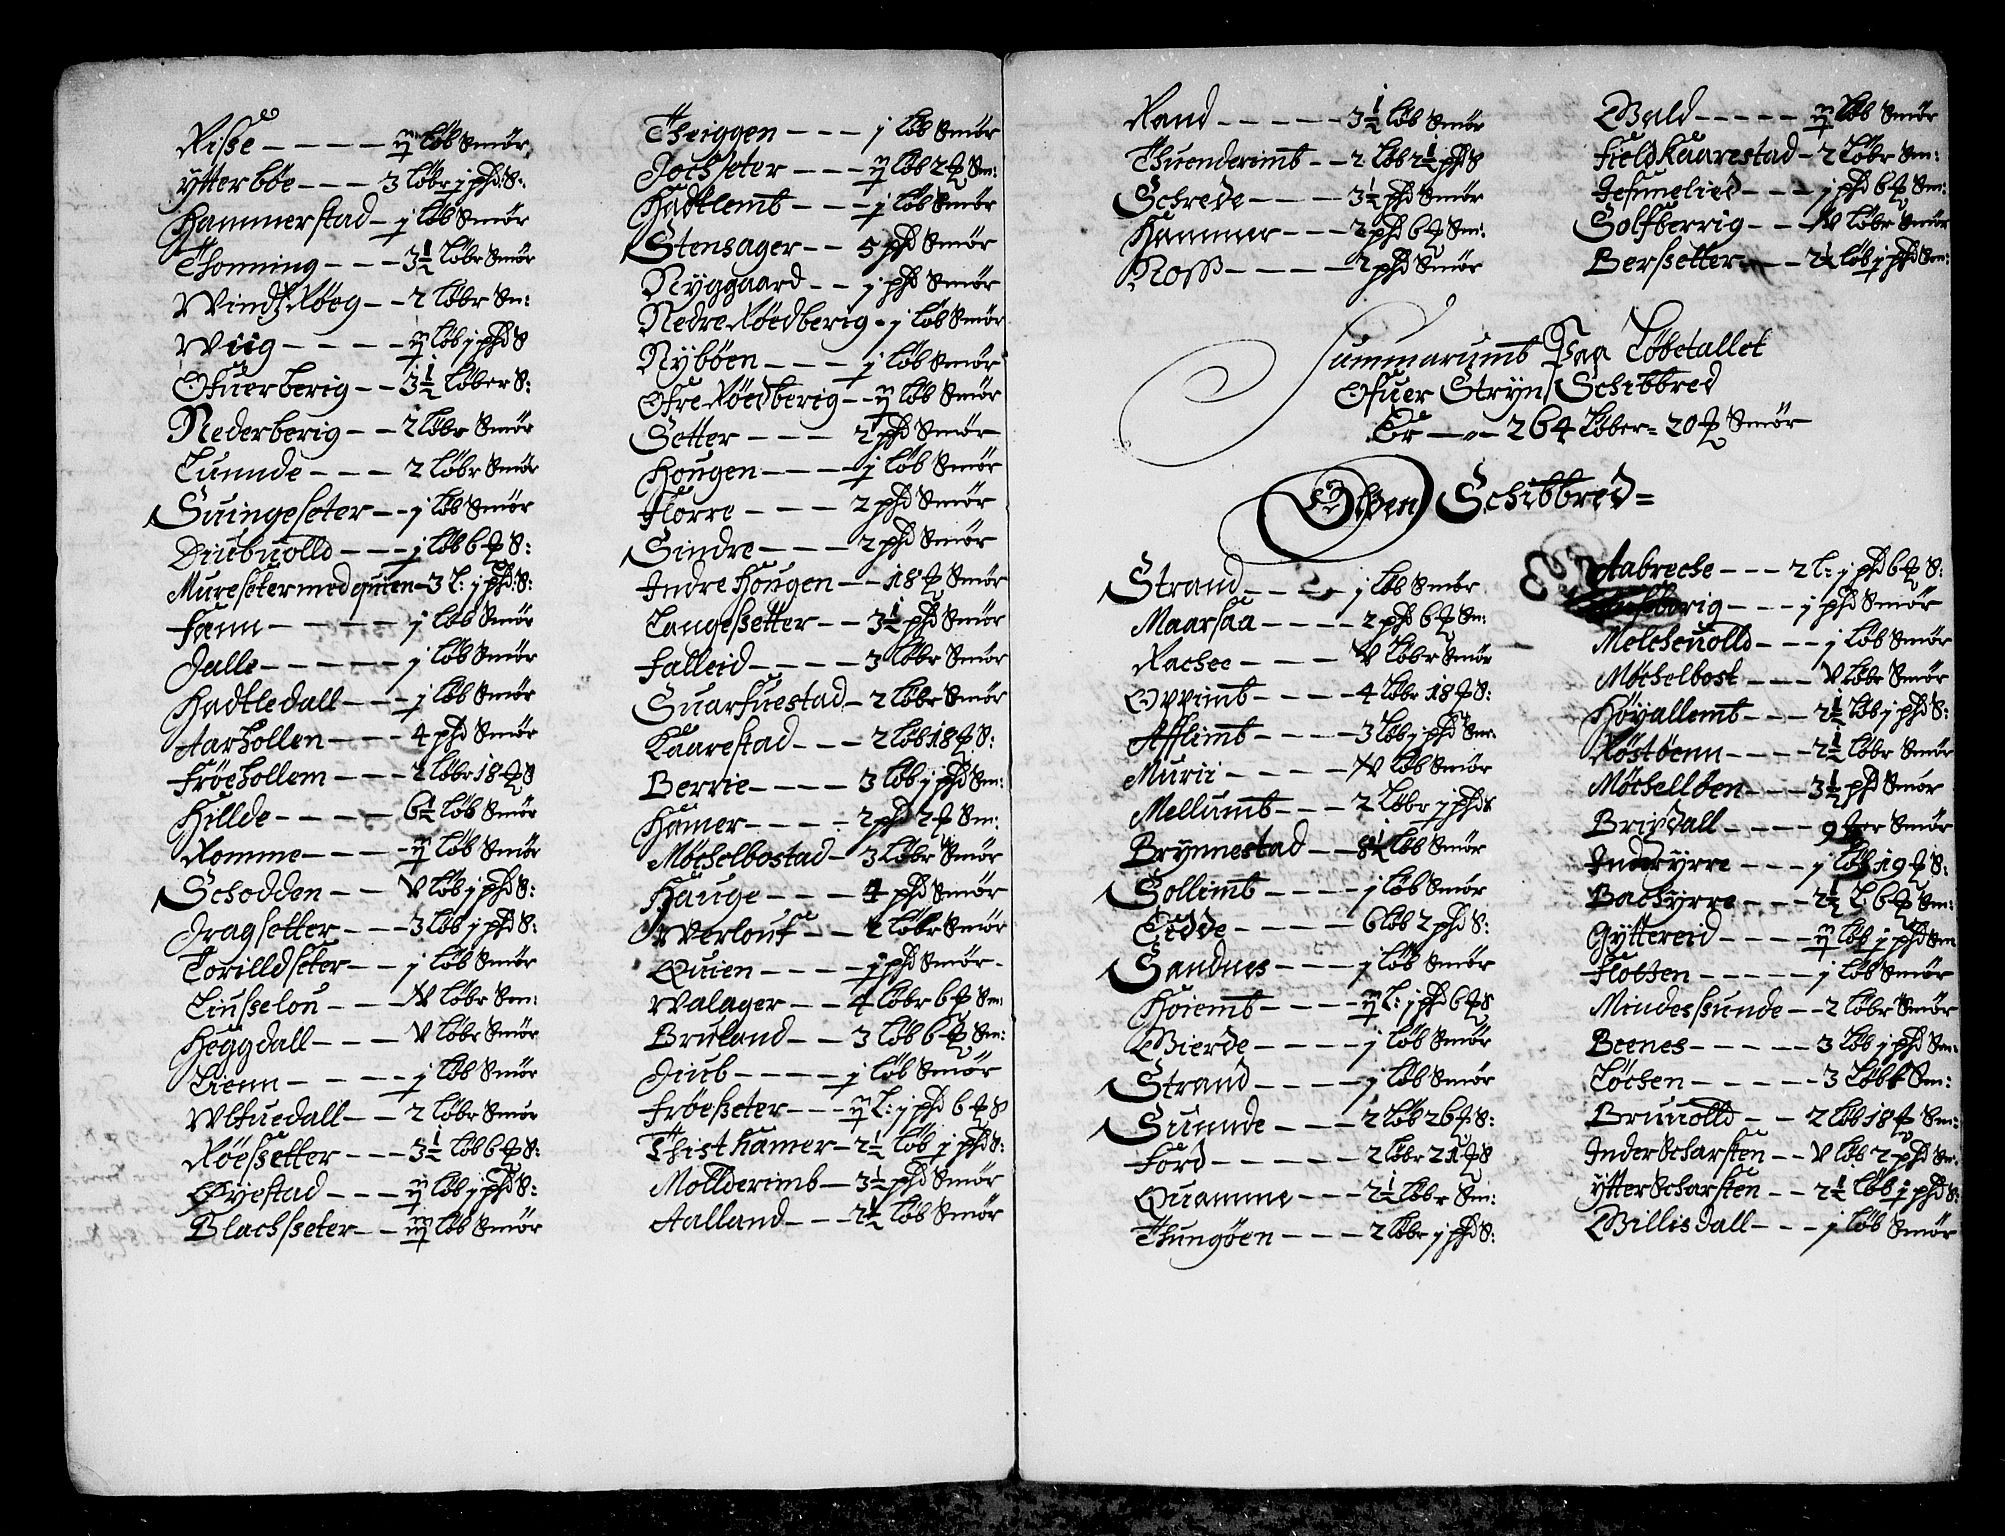 Riße - - - - - ij Løb Smør
Ytterbøe - - - 3 Løbr j phd: S:
Hammerstad - j Løb Smør
Thonning - - - 3½ Løbr Smør
Windß Røeg - - 2 Løbr Sm:
Wiig - - - - - ij Løb j phd S
Ofuerberig - - 3½ Løber S:
Nederberig - - 2 Løbr Smør
Tunnde - - - 2 Løbr Smør
Suingeseter - - j Løb Smør
Diubuolld - - - j Løb 6 ℔ S:
Mureseter med quien - 3 L: j phd: S:
Fann - - - - - j Løb Smør
Jalle - - - - - j Løb Smør
Hadtledall - - - j Løb Smør
Aarhollen - - - 4 phd Smør
Frøehollem - - - 2 Løbr 18 ℔ S
Hillde - - - - - 6½ Løb Smør
Romme - - - - ij Løb Smør
Schodden - - V Løb j phd S:
Dragsetter - - - 3 Løb j phd S:
Torilldseter - - j Løb Smør
Liußelou - - - IV Løbr Sm:
Heggdall - - - V Løbr Smør
Lienn - - - - - j Løb Smør
Wlfuedall - - 2 Løbr Smør
Røeßetter - - - 3½ Løb 6 ℔ S:
Øyestad - - - ij Løb j phd S:
Blachßeter - - iij Løb Smør
Theiggen - - - j Løb Smør
Jochseter - - - ij Løb 2 ℔ Sm:
Hadtlemb - - - j Løb Smør
Stensager - - 5 phd Smør
Nyggaard - - j phd Smør
Nedre Røedberig - j Løb Smør
Nybøen - - - j Løb Smør
Ofre Røedberig - - ij Løb Smør
Setter - - - 2 phd Smør
Hougen - - - j Løb Smør
Florre - - - - 2 phd Smør
Sindre - - - - 2 phd Smør
Indre Hougen - - 18 ℔ Smør
Langeßetter - - 3½ phd Smør
Falleid - - - - 3 Løbr Smør
Suarfuestad - 2 Løbr Smør
Kaarestad - - - 2 Løb 18 ℔ S:
Berrie - - - - 3 Løb j phd Sm:
Hamer - - - - - 2 phd 2 ℔ Sm:
Møchelbostad - 3 Løbr Smør
Hauge - - - - 4 phd Smør
Werlouf - - 2 Løbr Smør
Quien - - - - j phd Smør -
Walager - - 4 Løbr 6 ℔ Sm:
Bruland - - 3 Løb 6 ℔ Sm:
Diub - - - - - j Løb Smør
Frøeßeter - - - ij L: j phd 6 ℔ S
Thisthamer - 2½ Løb j phd S:
Mollderimb - 3½ phd Smør
Aalland - - - 2½ Løb Smør
Rand - - - - - 3½ Løb Smør
Thuenderimb - - 2 Løb 2½ phd S
Schrede - - - - 3½ phd Smør
Hammer - - - 2 phd 6 ℔ Sm:
Noss - - - - - 2 phd Smør
Wald - - - - - ij Løb Smør
Fieldkaarestad - 2 Løbr Sm:
Jefmelied - - - j phd 6 ℔ Sm:
Solfberrig - - - IV Løbr Smør
Berßetter - - 2½ Løb j phd Sm:
Summarumb Paa Løbetallet
Ofuer Stryn Schibbred
Er - - 264 Løber = 20 ℔ Smør
Olden Schibbred =
Strand - - 2 - j Løb Smør
Maarsaa - - - - 2 phd 6 ℔ Sm:
Rachee - - - - V Løbr Smør
Oppimb - - - - 4 Løbr 18 ℔ S:
Afflimb - - - - 3 Løb j phd Sm:
Murii - - - - - IV Løb Smør
Mellumb - - - 2 Løbr j phd S
Brynnestad - - 8½ Løb Smør
Sollimb - - - - j Løb Smør
Eidde - - - - - 6 Løb 2 phd S:
Sandnes - - - j Løb Smør
Høiemb - - - - ij L: j phd 6 ℔ S
Bierde - - - - j Løb Smør
Strand - - - - j Løb Smør
Sunnde - - - - 2 Løb 26 ℔ S:
Ford - - - - - 2 Løbr 21 ℔ S
Quamme - - - 2½ Løbr Sm:
Thungøen - - - 2 Løbr j phd S:
Aabreche - - - 2 L: j phd 6 ℔ S:
- - - j phd Smør
Melcheuolld - - - j Løb Smør
Møchelbost - - - V Løbr Smør
Høyallemb - - - 2½ Løb j phd S:
Røstøenn - - - 2½ Løbr Smør
Møchelløen - - - 3½ phd Smør
Brigdall - - - - 9 ℔er Smør
Inderyrre - - - j Løb 19 ℔ S:
Bachyrre - - - 2½ L 6 ℔ Sm:
Gyttereid - - - - ij Løb j phd Sm
Flotten - - - - - j Løb Smør
Mindesßunde - - 2 Løbr Smør
Beenes - - - - - 3 Løb j phd Sm:
Løchen - - - - - 3 Løbr Sm:
Bruuolld - - 2 Løb 18 ℔ Sm:
Inder Scharsten - - V Løb 2 phd Sm:
Ytter Scharsten - - 2½ Løb j phd S:
Willisdall - - - j Løb Smør